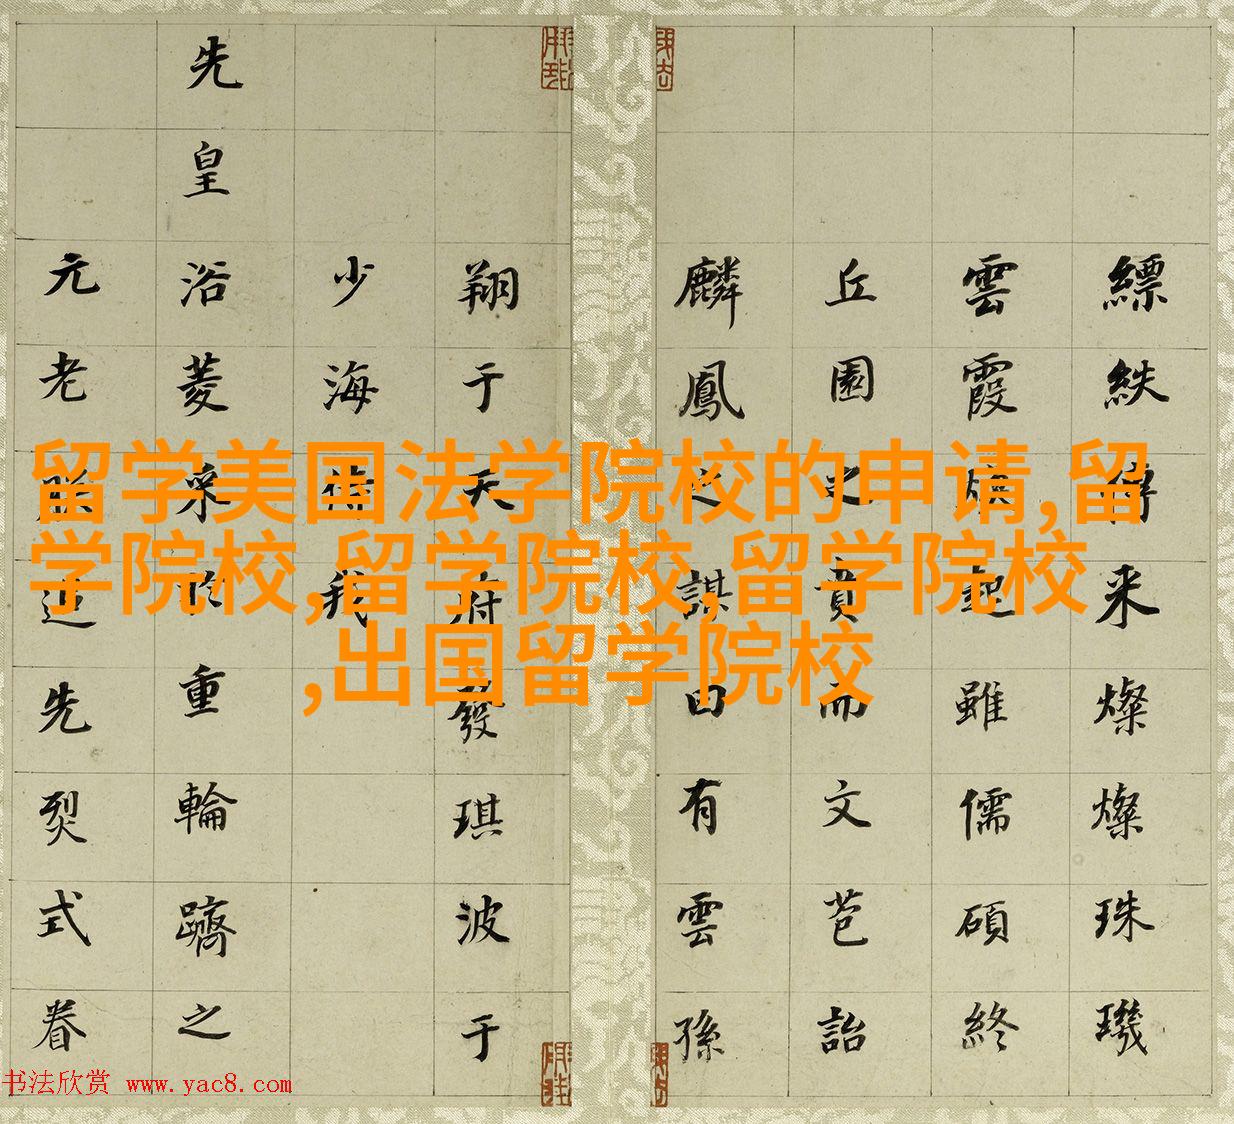 留学美国法学院校的申请,留
学院校,留学院校,留学院校
,出国留学院校
縹紩来燦燦珠璣
雲霞起雖儒碩終
丘園之賁而文芭詒
麟鳳之謀曰有雲孫
翔于天府發琪波于
少海我
先皇浴菱采於重輪躋之
元老先烈式眷
书法欣赏 www.yac8.com